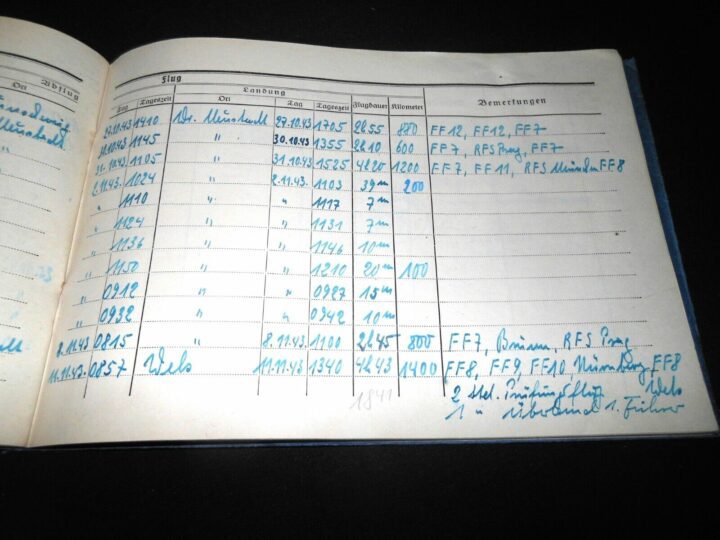 Abflug
Flug
Landung
Ort
Tag Tageszeit Ort Tag Tageszeit Flugdauer Kilometer Bemerkungen
27.10.43 1410 Wr. Neustadt 27.10.43 1705 2h55 800 FF12, FF12, FF7
Neustadt
30.10.43 1145 " 30.10.43 1355 2h10 600 FF7, RFS Prag, FF7
31.10.43 1105 " 31.10.43 1525 4h20 1200 FF7, FF11, RFS München FF8
2.11.43. 1024 " 2.11.43. 1103 39m 200
" 1110 " " 1117 7m
" 1124 " " 1131 7m
" 1136 " " 1146 10m
" 1150 " " 1210 20m 100
" 0912 " " 0927 15m
" 0932 " " 0942 10m
8.11.43 0815 " 8.11.43 1100 2h45 800 FF7, Brünn, RFS Prag
11.11.43. 0857 Wels 11.11.43 1340 4h43 1400 FF8, FF9, FF10, Nürnberg, FF8
1841
2 Prüfungsflug Wels
1 " Überland 1. Führer